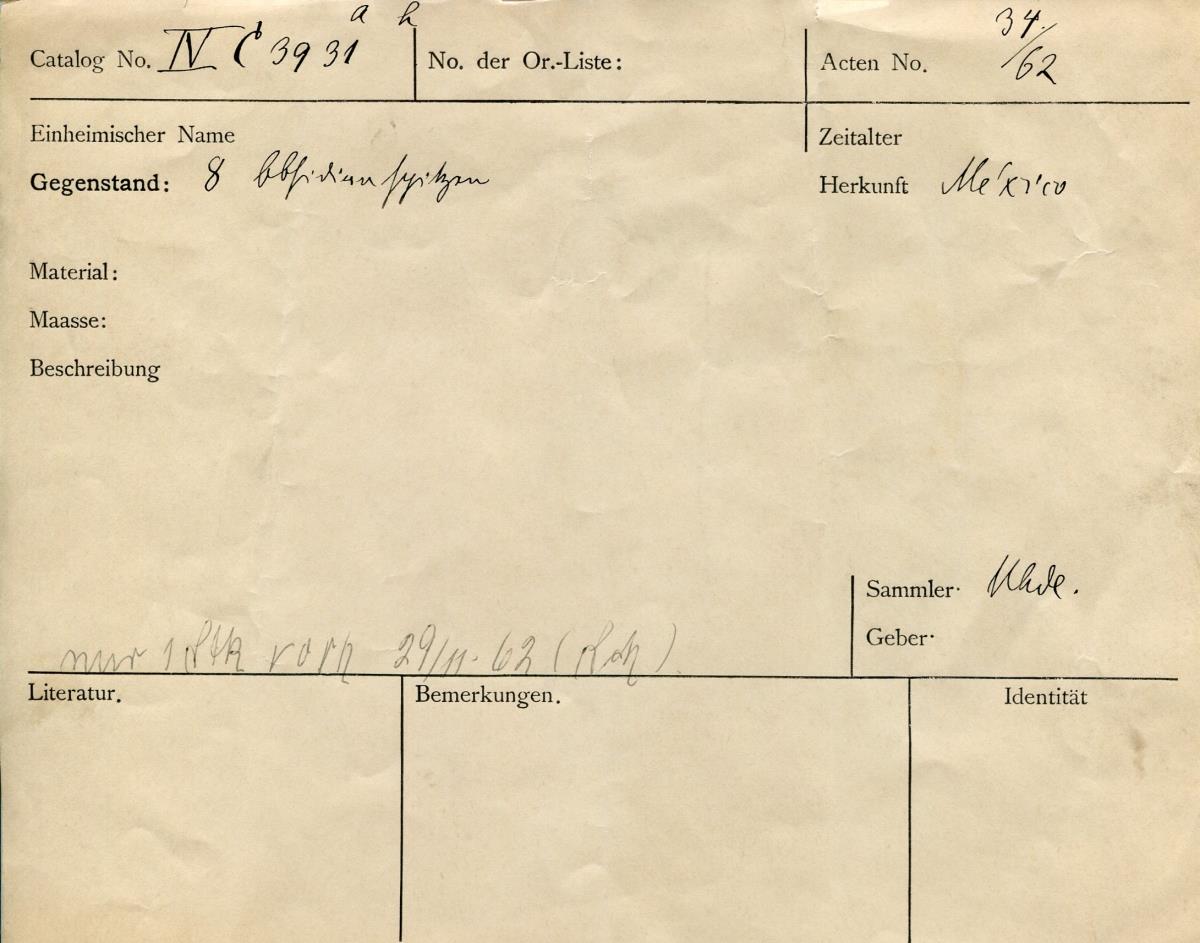 a h
Catalog No. IV Ca 3931 No. der Or.-Liste: Acten No. 34/62
Einheimischer Name Zeitalter
Gegenstand: 8 Obsidianspitzen Herkunft México
Material:
Maasse:
Beschreibung
Sammler· Uhde.
Geber·
nur 1 Stk vorh 29/11·62
Literatur. Bemerkungen. Identität